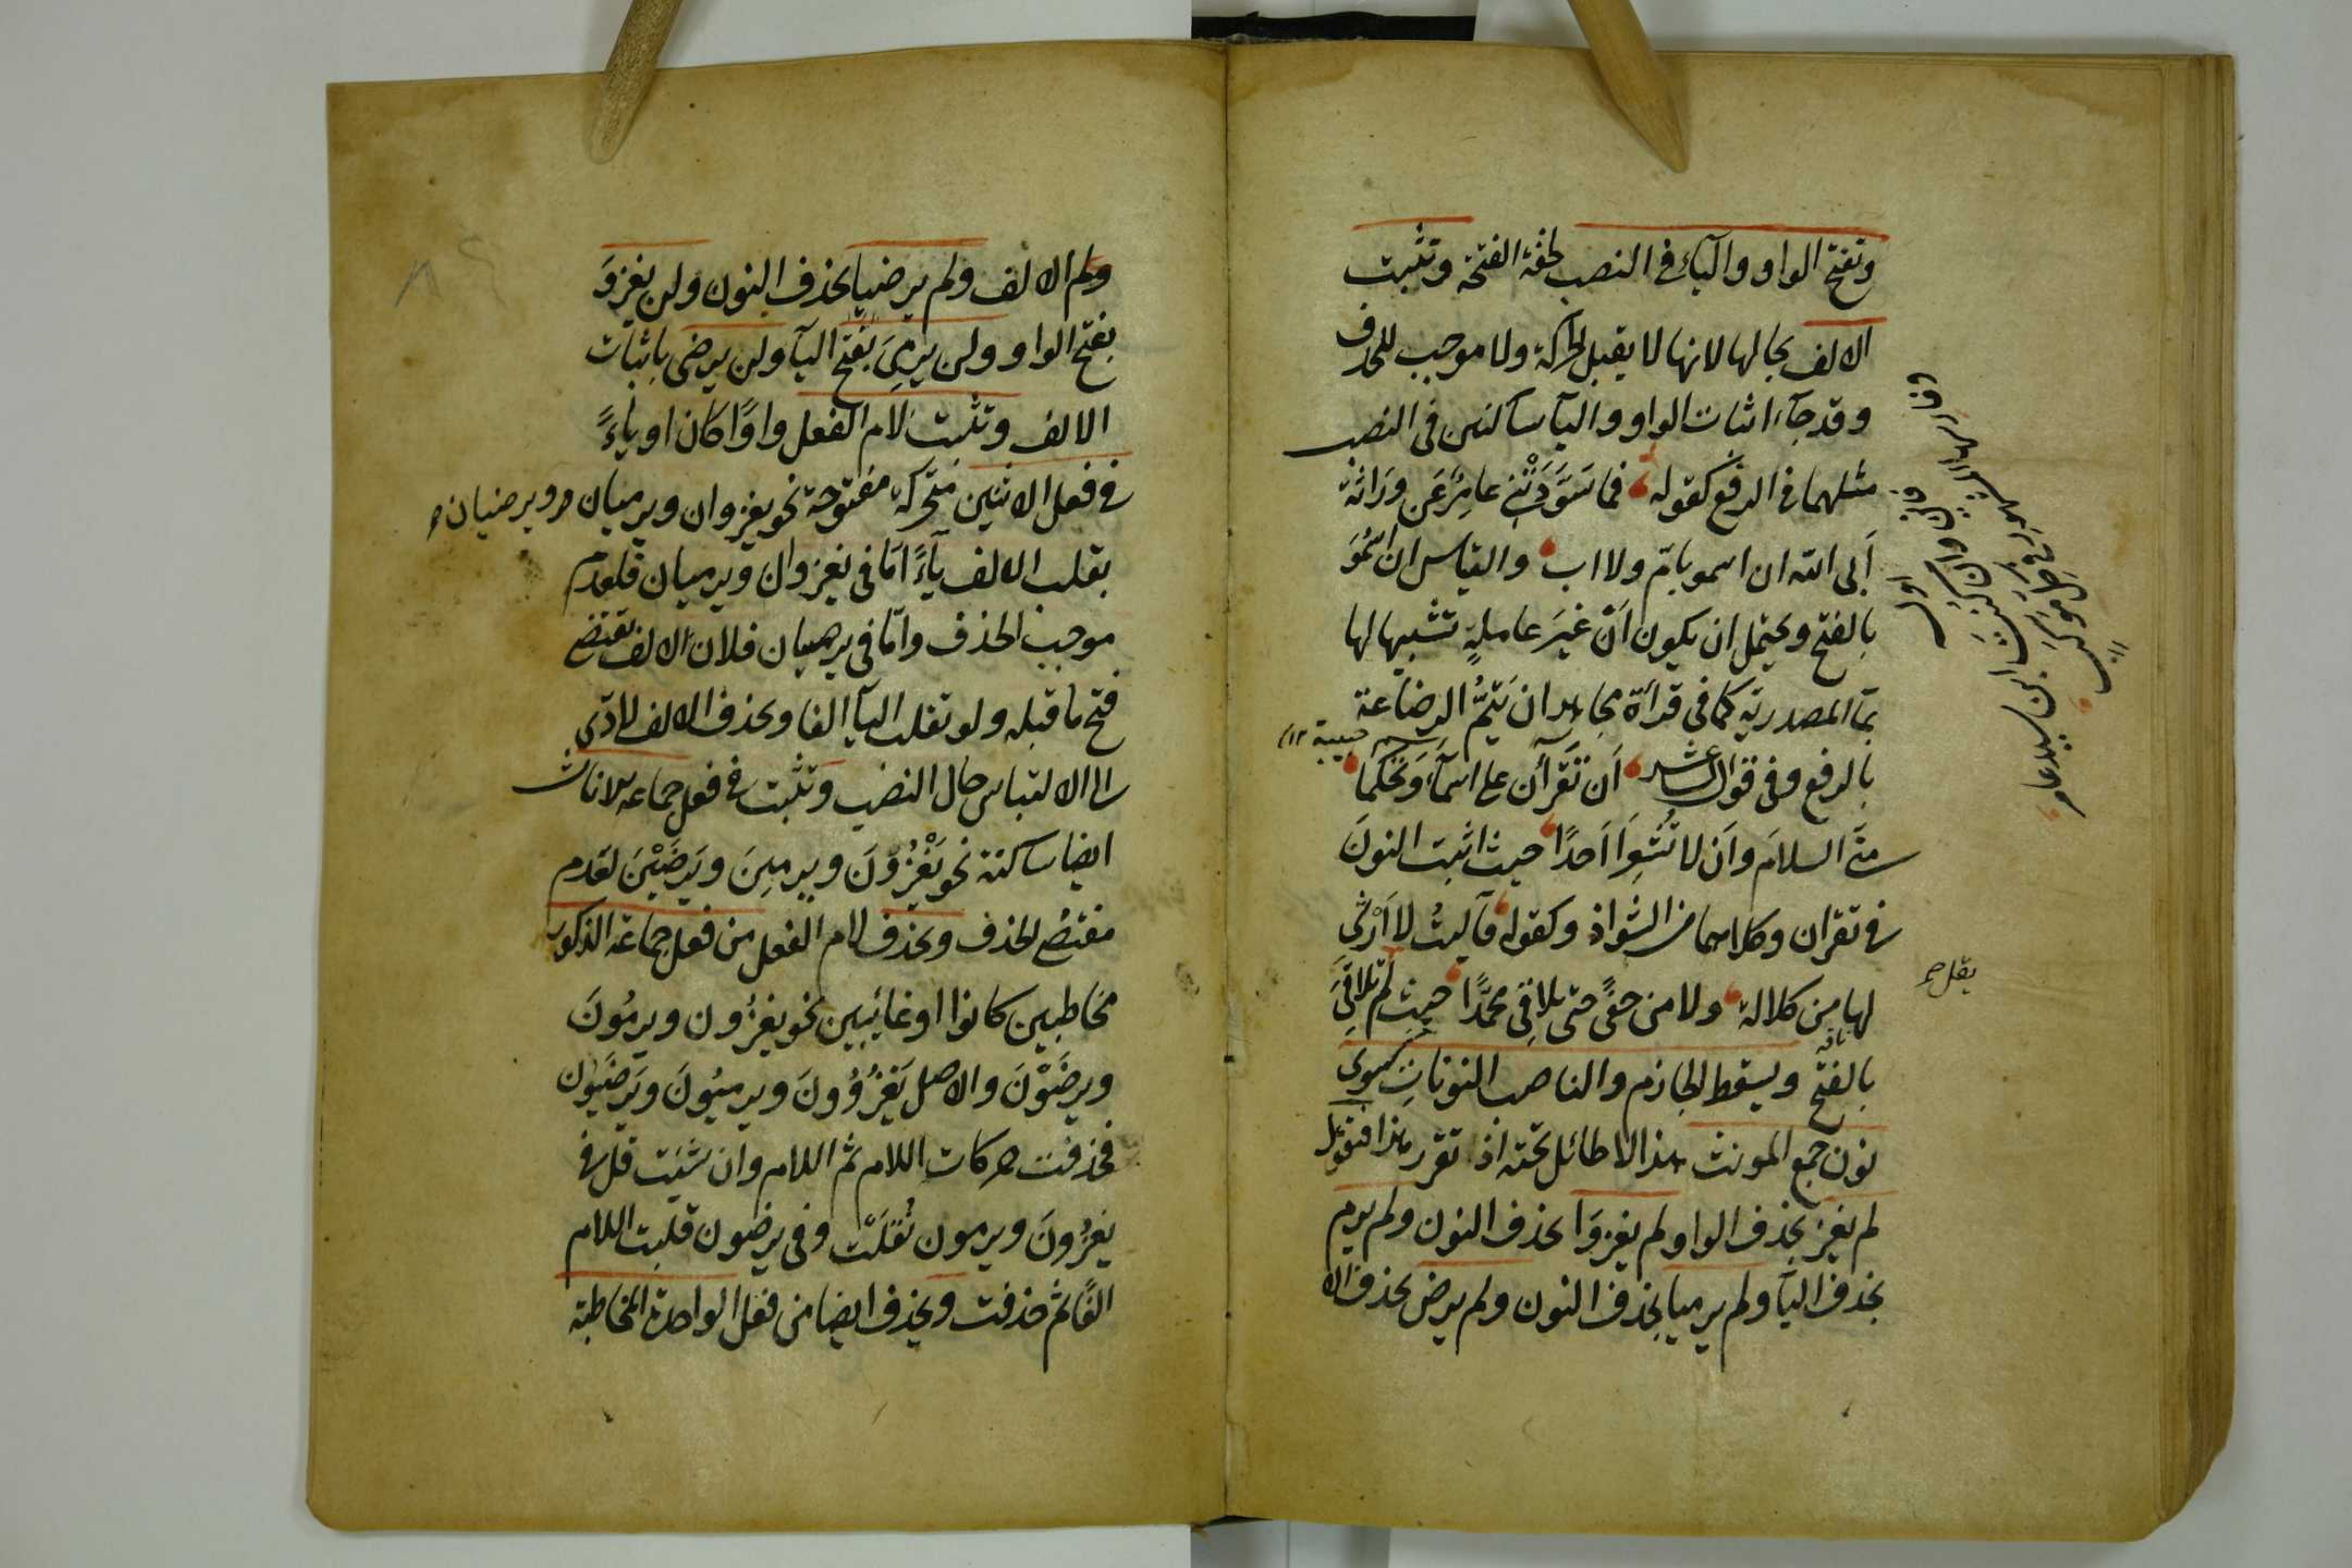 وتفتح الواو والياء في النصب لخفة الفتحة وتثبت
الالف بحالها لانها لا يقبل الحركة ولا موجب للحذف
وقد جاء اثبات الواو والياء ساكنين في النصب
مثلهما في الرفع كقوله فما سَوَّدَتْنِي عامِرٌ عَن وِرَاثة
اَبى الله ان اسمو بامّ ولا اب والقياس ان اَسْمُوَ
بالفتح ويحتمل ان يكون اَنْ غيرَ عاملةٍ تشبيها لها
بما المصدرية كما في قرأة مجاهد ان يَتمُّ الرضاعة
بالرفع وفي قول الشاعر اَن تَقْرَأن على اسمآءَ وَيحَكُما
منّي السلامَ واَن لا تُشْعِرَا اَحدًا حيث اثبت النونَ
في تقرأن وكلاهما من الشواذ وكقوله فآليتُ لا اَرْثي
لها من كلالة ولا من حفًى حتى تلاقي محمّدًا حيث لم تلاقيَ
بالفتح ويسقط الجازم والناصب النونات سوى
نون جمع المونث هذا لا طائل تحته اذا تقرر هذا فنقول
لم يغز بحذف الواو ولم يغزوَا بحذف النون ولم يرم
بحذف اليآ ولم يرميا بحذف النون ولم يرض بحذف الا
يقل
ولم الالف ولم يرضيا بحذف النون ولن يغزوَ
بفتح الواو ولن يرميَ بفتح اليآ ولن يرضى باثبات
الالف وتثبت لام الفعل واوًا كان او ياءً
في فعل الاثنين متحركة مفتوحة نحو يغزوان ويرميان ويرضيان
بقلب الالف ياءً امّا في يغزوان ويرميان فلعدم
موجب الحذف وامّا في يرضيان فلان الالف تقتضي
فتح ما قبله ولو تقلب اليآ الفا ويحذف الالف لادّى
الى الالتباس حال النصب وتثبت في فعل جماعة الاناث
ايضا ساكنة نحو يَغْزُوْنَ ويرمينَ ويَرضَيْنَ لعدم
مقتضى الحذف ويحذف لام الفعل من فعل جماعة الذكور
مخاطبين كانوا او غائبين نحو يغزُون ويرمُونَ
ويرضَوْنَ والاصل يَغْزُوُونَ ويرميُونَ ويَرضَيُون
فحذفت حركات اللام ثم اللام وان شئت قل في
يغزُونَ ويرمون نُقِلَتْ وفي يرضون قلبت اللام
الفًا ثم حذفت ويحذف ايضا من فعل الواحدة المخاطبة